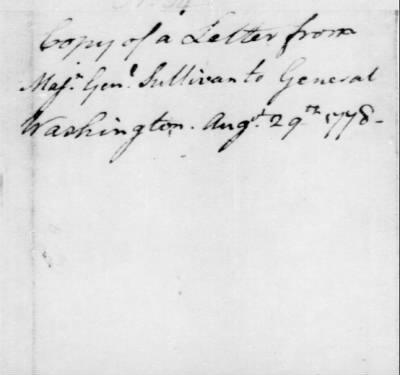 Copy of a Letter from
Majr. Genl. Sullivan to General
Washington. Augt. 29th. 1778-